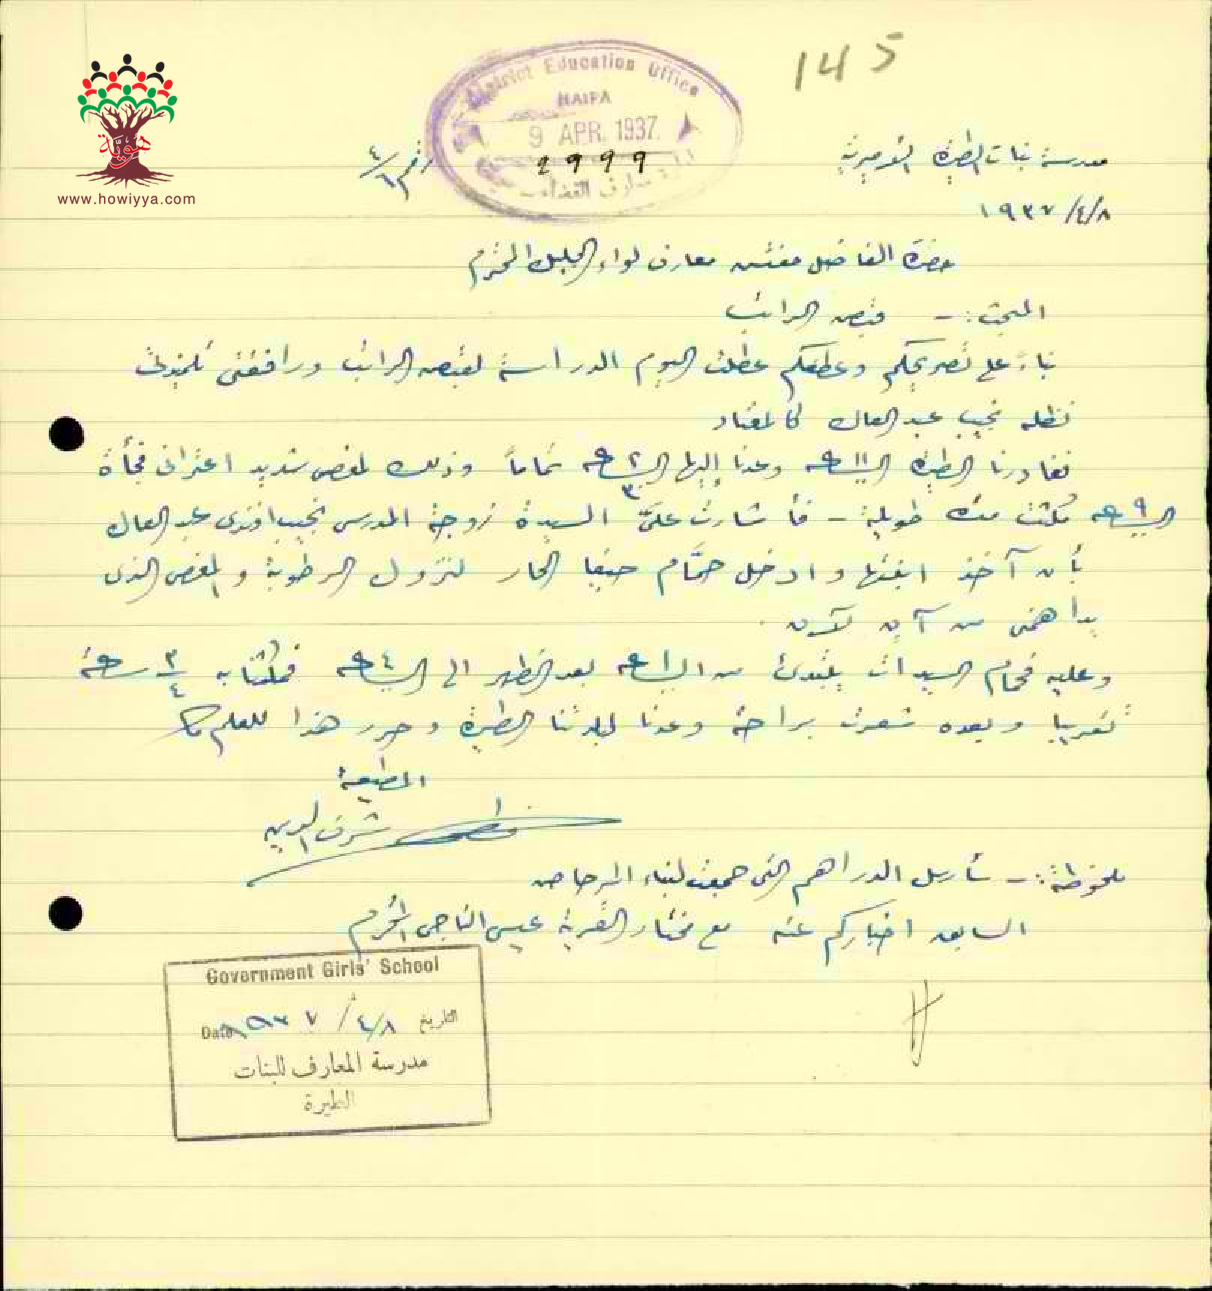 145
District Education Office
HAIFA
9 APR. 1937
2999
هوية
www.howiyya.com
مدرسة بنات الطيرة الأميرية
١٩٣٧/٤/٨
حضرة الفاضل مفتش معارف لواء الجليل المحترم
المبحث :- قبض الراتب
بناءً على تصريحكم وعطفكم عطلت اليوم الدراسة لقبض الراتب ورافقتني تلميذتي
نجيب عبد العال كالمعتاد
فغادرنا الطيرة الساعة ١١ وعدنا إليها الساعة ٢ تماماً وذلك لمغص شديد اعتراني فجأة
الساعة ٩ مكثت مدة طويلة - فأشارت عليّ السيدة زوجة المدرس نجيب افندي عبد العال
بأن آخذ ابنتها وادخل حمّام حيفا الحار لنزول الرطوبة والمغص الذي
يداهمني من آن لآن .
وعليه فحمام السيدات يبتدئ من الساعة ١ بعد الظهر الى الساعة ٤ فمكثنا به ٣/٤ ساعة
تقريبا وبعده شعرت براحة وعدنا لبلدتنا الطيرة وحرر هذا للعلم
المطيعة
شرف الدين
ملحوظة :- سأرسل الدراهم التي جمعت لبناء المرحاض
السابق اخباركم عنه مع مختار القرية عيسى الناجي المحترم
Government Girls' School
Date ١٩٣٧/٤/٨ التاريخ
مدرسة المعارف للبنات
الطيرة